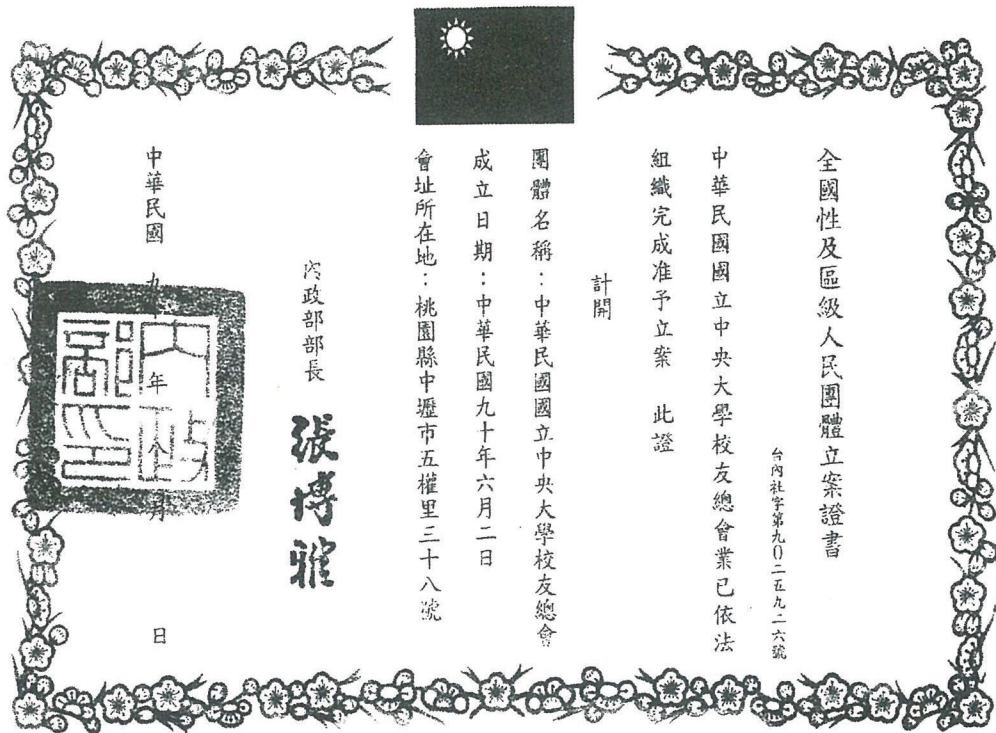 全國性及區級人民團體立案證書
台內社字第九0二五九二六號
中華民國國立中央大學校友總會業已依法
組織完成准予立案 此證
計開
團體名稱：中華民國國立中央大學校友總會
成立日期：中華民國九十年六月二日
會址所在地：桃園縣中壢市五權里三十八號
內政部部長 張博雅
內政部印
中華民國 九十年 月 日